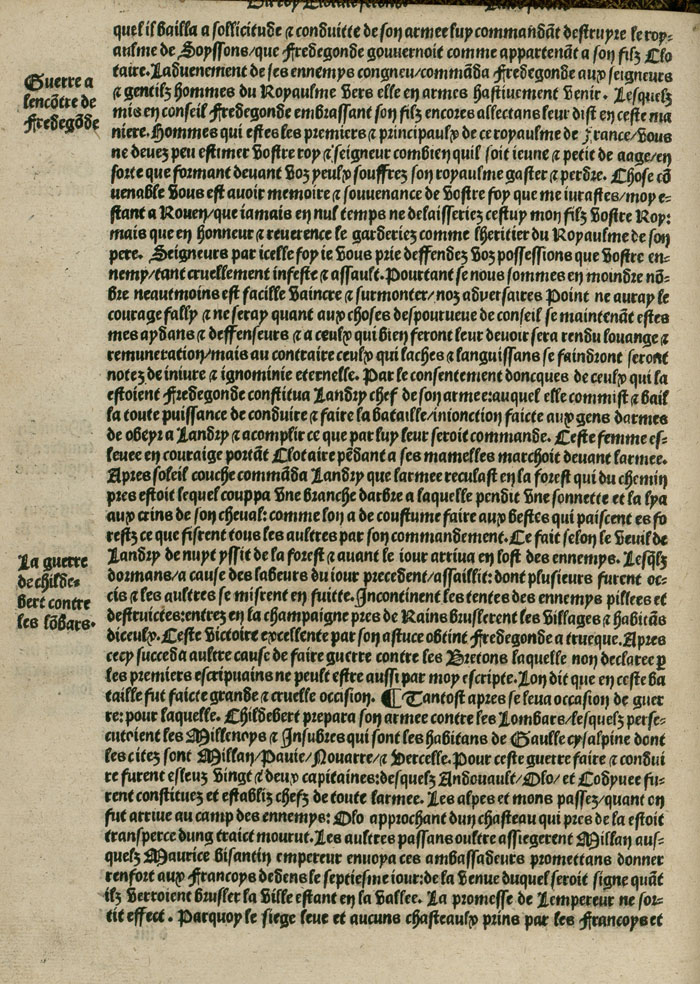 quel il bailla a sollicitude ⁊ conduitte de son armee luy commandāt destruyre le roy-
aulme de Soyssons/que Fredegonde gouuernoit comme appartenāt a son filz Clo
taire. Laduenement de ses ennemys congneu/commāda Fredegonde aux seigneurs
⁊ gentilz hommes du Royaulme vers elle en armes hastiuement venir. Lesquelz
mis en conseil Fredegonde embrassant son filz encores allectans leur dist en ceste ma
niere. Hommes qui estes les premiers ⁊ principaulx de ce royaulme de france/vous
ne deuez peu estimer vostre roy ⁊ seigneur combien quil soit ieune ⁊ petit de aage/en
sorte que formant deuant voz yeulx souffrez son royaulme gaster ⁊ perdre. Chose cō
uenable vous est auoir memoire ⁊ souuenance de vostre foy que me iurastes/moy e-
stant a Rouen/que iamais en nul temps ne delaisseriez cestuy mon filz vostre Roy:
mais que en honneur ⁊ reuerence le garderiez comme lheritier du Royaulme de son
pere. Seigneurs par icelle foy ie vous prie deffendez voz possessions que vostre en-
nemy/tant cruellement infeste ⁊ assault. Pourtant se nous sommes en moindre nō-
bre neautmoins est facille vaincre ⁊ surmonter/noz aduersaires Point ne auray le
courage fally ⁊ ne seray quant aux choses despourueue de conseil se maintenāt estes
mes aydans ⁊ deffenseurs ⁊ a ceulx qui bien feront leur deuoir sera rendu louange ⁊
remuneration/mais au contraire ceulx qui laches ⁊ languissans se faindront serōt
notez de iniure ⁊ ignominie eternelle. Par le consentement doncques de ceulx qui la
estoient Fredegonde constitua Landry chef de son armee:auquel elle commist ⁊ bail
la toute puissance de conduire ⁊ faire la bataille/inionction faicte aux gens darmes
de obeyr a Landry ⁊ acomplir ce que par luy leur seroit commande. Ceste femme es-
leuee en couraige portāt Clotaire pēdant a ses mamelles marchoit deuant larmee.
Apres soleil couche commāda Landry que larmee reculast en la forest qui du chemin
pres estoit lequel couppa vne branche darbre a laquelle pendit vne sonnette et la lya
aux crins de son cheual: comme lon a de coustume faire aux bestes qui paiscent es fo
restz ce que fisrent tous les aultres par son commandement. Ce fait selon le veuil de
Landry de nuyt yssit de la forest ⁊ auant le iour arriua en lost des ennemys. Lesq̄lz
dormans/a cause des labeurs du iour precedent/assaillit: dont plusieurs furent oc-
cis ⁊ les aultres se misrent en fuitte. Incontinent les tentes des ennemys pillees et
destruictes:entrez en la champaigne pres de Rains bruslerent les villages ⁊ habitās
diceulx. Ceste victoire excellente par son astuce obtint Fredegonde a trueque. Apres
cecy succeda aultre cause de faire guerre contre les Bretons laquelle non declaree ꝑ
les premiers escripuains ne peult estre aussi par moy escripte. Lon dit que en ceste ba
taille fut faicte grande ⁊ cruelle occision. ¶ Tantost apres se leua occasion de guer
re: pour laquelle. Childebert prepara son armee contre les Lombars/lesquelz perse-
cutoient les Millenoys ⁊ Insubres qui sont les habitans de Gaulle cysalpine dont
les citez sont Millan/Pauie/Nouarre/⁊ Vercelle. Pour ceste guerre faire ⁊ condui
re furent esleuz vingt ⁊ deux capitaines:desquelz Andouault/Olo/et Codyuee fu-
rent constituez et establiz chefz de toute larmee. Les alpes et mons passez/quant on
fut arriue au camp des ennemys: Olo approchant dun chasteau qui pres de la estoit
transperce dung traict mourut. Les aultres passans oultre assiegerent Millan aus-
quelz Maurice bisantin empereur enuoya ces ambassadeurs promettans donner
renfort aux Francoys dedens le septiesme iour:de la venue duquel seroit signe quāt
ilz verroient brusler la ville estant en la vallee. La promesse de Lempereur ne sor-
tit effect. Parquoy le siege leue et aucuns chasteaulx prins par les Francoys et
Guerre a
lencōtre de
Fredegōde
La guerre
de childe-
bert contre
les lōbars.